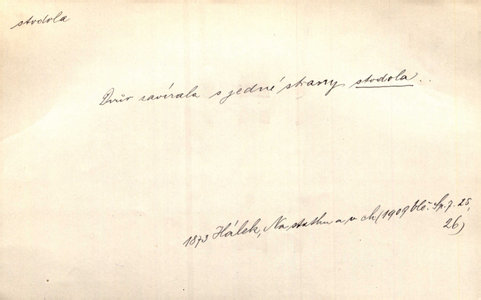 stodola
Dvůr zavírala s jedné strany stodola..
1873 Hálek, Na statku a v ch (1909 Sp. 7. 25,
26)